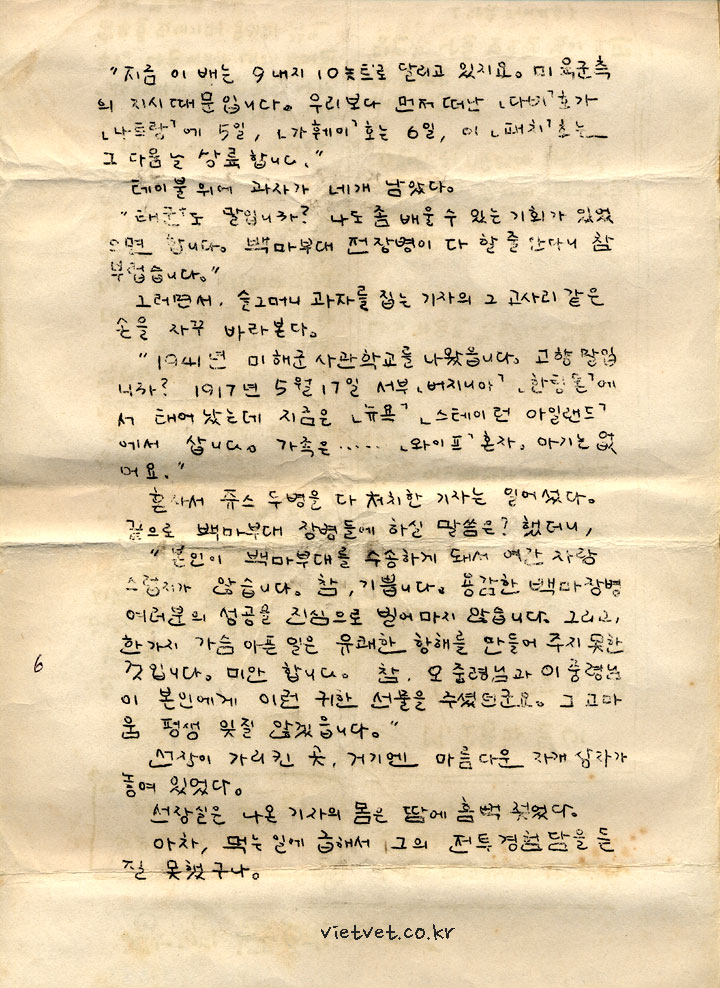 "지금 이 배는 9내지 10놋트로 달리고 있지요. 미육군측
의 지시 때문입니다. 우리보다 먼저 떠난 「다비」호가
「나트랑」에 5일, 「가훼이」호는 6일, 이 「패치」호는
그 다음날 상륙합니다."
테이블 위에 과자가 네개 남았다.
"태군도 말입니까? 나도 좀 배울 수 있는 기회가 있었
으면 합니다. 백마부대 전장병이 다 할줄 안다니 참
부럽습니다."
그러면서, 슬그머니 과자를 집는 기자의 그 고사리 같은
손을 자꾸 바라본다.
"1941년 미해군 사관학교를 나왔읍니다. 고향 말입
니까? 1917년 5월 17일 서부 「버지니아」 「한팅톤」에
서 태어 났는데 지금은 「뉴욕」 「스테이턴 아일랜드」
에서 삽니다. 가족은..... 「와이프」 혼자. 아기는 없
어요."
혼자서 쥬스 두병을 다 처치한 기자는 일어섰다.
끝으로 백마부대 장병들에 하실 말씀은? 했더니,
"본인이 백마부대를 수송하게 돼서 여간 자랑
스럽지가 않습니다. 참, 기쁩니다. 용감한 백마장병
여러분의 성공을 진심으로 빌어 마지 않습니다. 그리고,
한가지 가슴 아픈 일은 유쾌한 항해를 만들어 주지 못한
것입니다. 미안 합니다. 참, 오 중령님과 이 중령님
이 본인에게 이런 귀한 선물을 주셨더군요. 그 고마
움 평생 잊질 않겠읍니다."
선장이 가리킨 곳, 거기엔 아름다운 자개 상자가
놓여 있었다.
선장실은 나온 기자의 몸은 땀에 흠벅 젖었다.
아차, 먹는 일에 급해서 그의 전투경험담을 듣
질 못했구나.
6
vietvet.co.kr